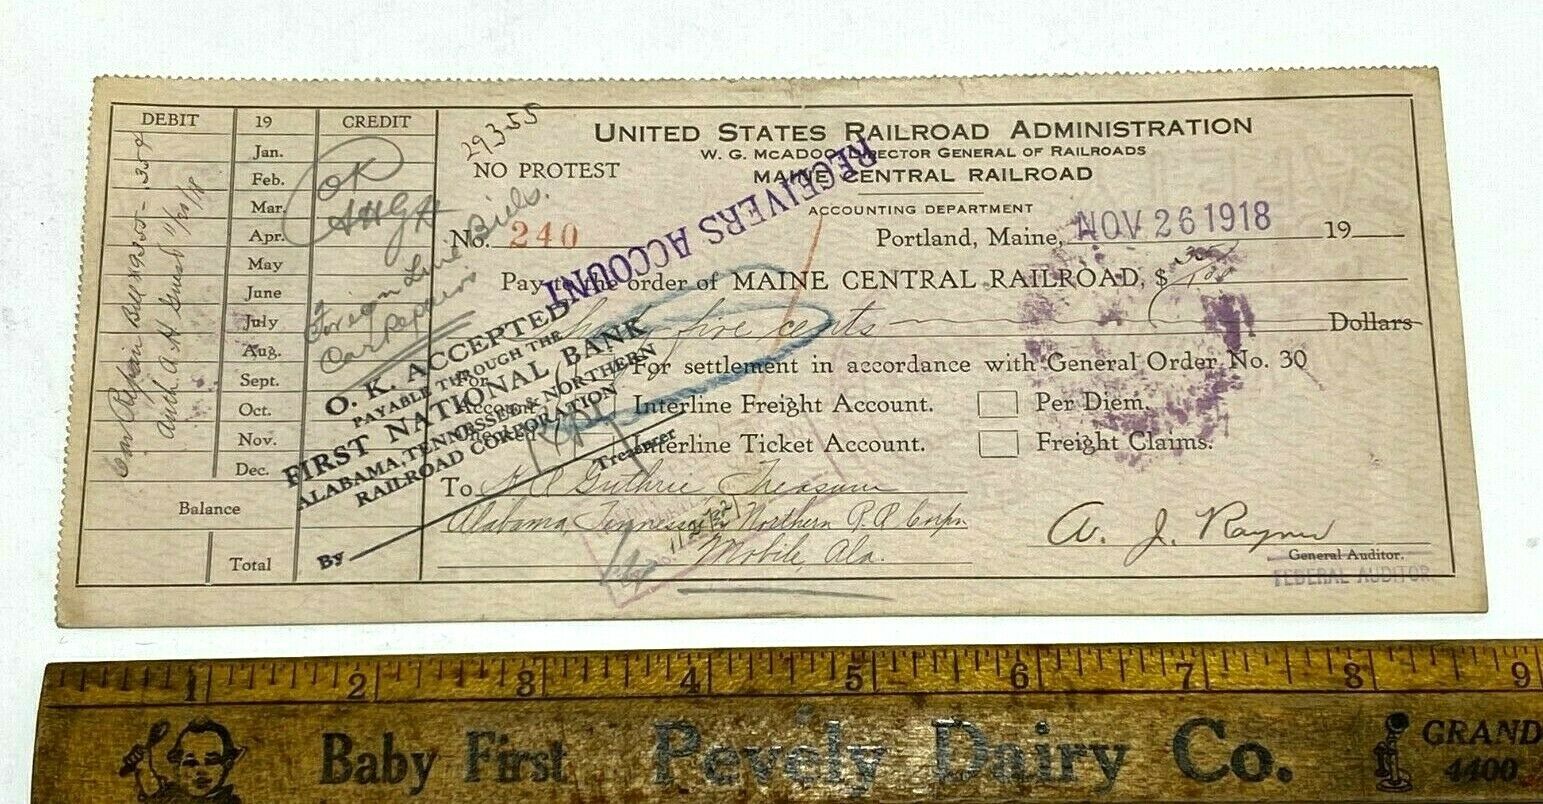 DEBIT 19 CREDIT
Jan.
Feb.
Mar.
Apr.
May
June
July
Aug.
Sept.
Oct.
Nov.
Dec.
Balance
Total
Car Repair Bill 29355 - 35¢
OK
AHGK
Foreign Line Bills.
Car Repairs
29355
UNITED STATES RAILROAD ADMINISTRATION
W. G. MCADOO, DIRECTOR GENERAL OF RAILROADS
NO PROTEST
MAINE CENTRAL RAILROAD
ACCOUNTING DEPARTMENT
RECEIVERS ACCOUNT
No. 240
Portland, Maine, NOV 26 1918 19
Pay to the order of MAINE CENTRAL RAILROAD, $ 35/100
five cents Dollars
For settlement in accordance with General Order No. 30
Interline Freight Account.
Per Diem.
Interline Ticket Account.
Freight Claims.
O. K. ACCEPTED
PAYABLE THROUGH THE
FIRST NATIONAL BANK
ALABAMA, TENNESSEE & NORTHERN
RAILROAD CORPORATION
Treasurer
By
To Guthrie Treasurer
Alabama, Tennessee Northern R.R. Corpn
Mobile, Ala.
A. J. Raynes
General Auditor.
FEDERAL AUDITOR.
1 2 3 4 5 6 7 8 9
Baby First Pevely Dairy Co. GRAND
4400